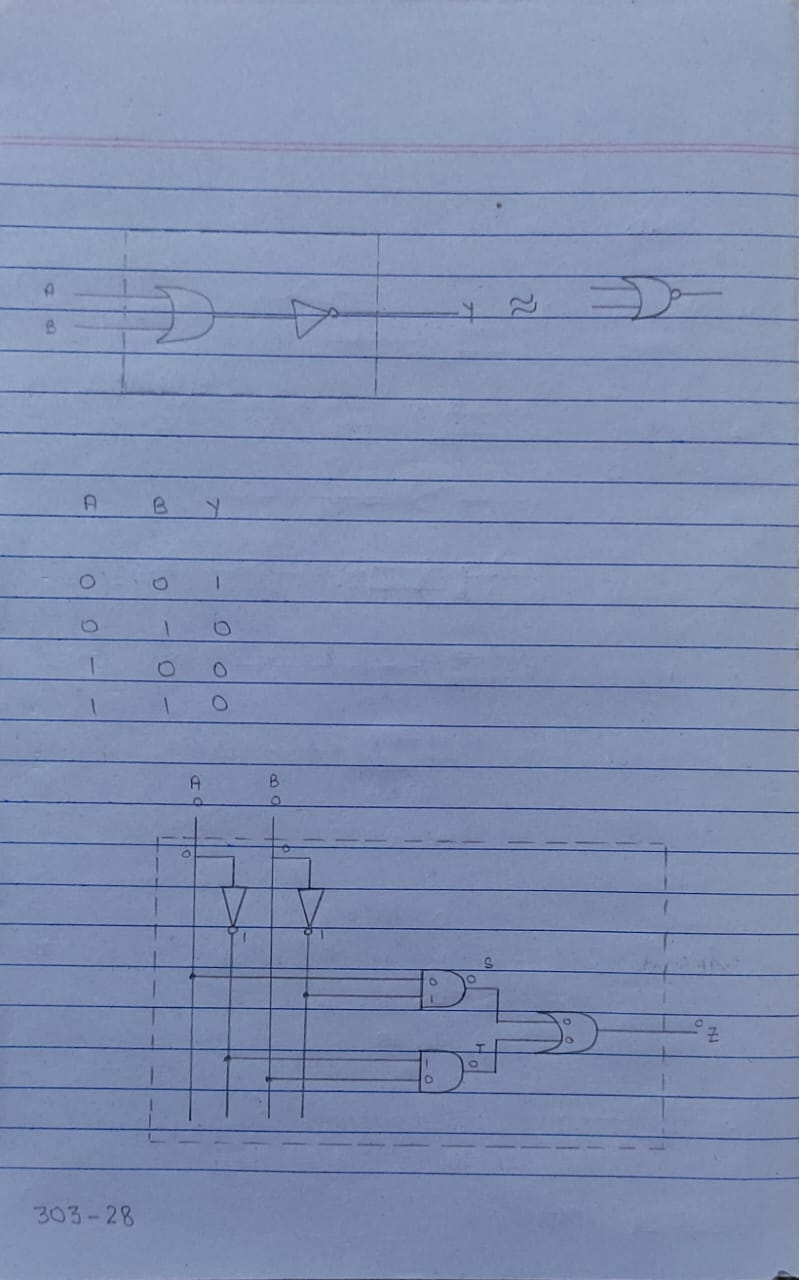 A
B
Y ≈
A B Y
0 0 1
0 1 0
1 0 0
1 1 0
A B
0 0
0 0
1 1
S
0 0
1
0
0 Z
0
T
1 0
0
303-28